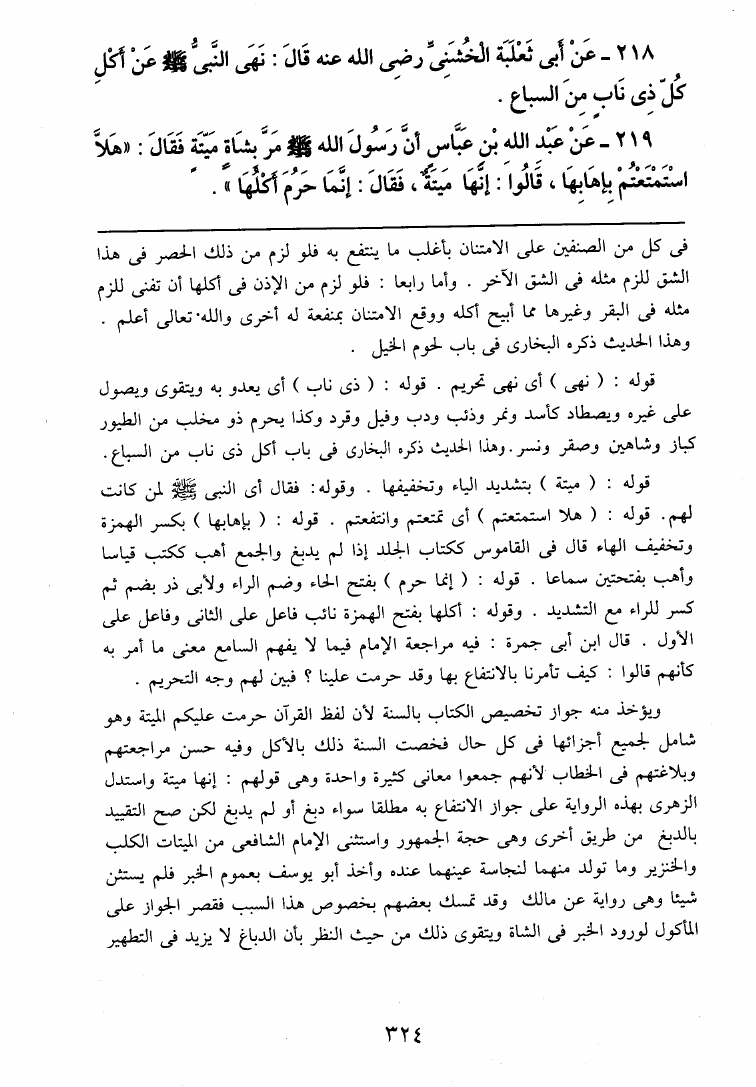 ٢١٨ ـ عَنْ أَبِى ثَعْلَبَةَ الْخُشَنِىِّ رضى الله عنه قَالَ : نَهَى النَّبِىُّ ﷺ عَنْ أَكْلِ
كُلِّ ذِى نَابٍ مِنَ السباع .
٢١٩ ـ عَنْ عَبْدِ الله بْنِ عَبَّاسٍ أنَّ رَسُولَ الله ﷺ مَرَّ بِشَاةٍ مَيِّتَةٍ فَقَالَ : «هَلاَّ
اسْتَمْتَعْتُمْ بِإِهَابِهَا ، قَالُوا : إنَّهَا مَيتَةٌ ، فَقَالَ : إنَّمَا حَرُمَ أَكْلُهَا » .
فى كل من الصنفين على الامتنان بأغلب ما ينتفع به فلو لزم من ذلك الحصر فى هذا
الشق للزم مثله فى الشق الآخر . وأما رابعا : فلو لزم من الإذن فى أكلها أن تفنى للزم
مثله فى البقر وغيرها مما أبيح أكله ووقع الامتنان بمنفعة له أخرى والله تعالى أعلم .
وهذا الحديث ذكره البخارى فى باب لحوم الخيل .
قوله : ( نهى ) أى نهى تحريم . قوله : ( ذى ناب ) أى يعدو به ويتقوى ويصول
على غيره ويصطاد كأسد ونمر وذئب ودب وفيل وقرد وكذا يحرم ذو مخلب من الطيور
كباز وشاهين وصقر ونسر. وهذا الحديث ذكره البخارى فى باب أكل ذى ناب من السباع.
قوله : ( ميتة ) بتشديد الياء وتخفيفها . وقوله: فقال أى النبى ﷺ لمن كانت
لهم. قوله : ( هلا استمتعتم ) أى تمتعتم وانتفعتم . قوله : ( بإهابها ) بكسر الهمزة
وتخفيف الهاء قال فى القاموس ككتاب الجلد إذا لم يدبغ والجمع أهب ككتب قياسا
وأهب بفتحتين سماعا . قوله : ( إنما حرم ) بفتح الحاء وضم الراء ولأبى ذر بضم ثم
كسر للراء مع التشديد . وقوله : أكلها بفتح الهمزة نائب فاعل على الثانى وفاعل على
الأول . قال ابن أبى جمرة : فيه مراجعة الإمام فيما لا يفهم السامع معنى ما أمر به
كأنهم قالوا : كيف تأمرنا بالانتفاع بها وقد حرمت علينا ؟ فبين لهم وجه التحريم .
ويؤخذ منه جواز تخصيص الكتاب بالسنة لأن لفظ القرآن حرمت عليكم الميتة وهو
شامل لجميع أجزائها فى كل حال فخصت السنة ذلك بالأكل وفيه حسن مراجعتهم
وبلاغتهم فى الخطاب لأنهم جمعوا معانى كثيرة واحدة وهى قولهم : إنها ميتة واستدل
الزهرى بهذه الرواية على جواز الانتفاع به مطلقا سواء دبغ أو لم يدبغ لكن صح التقييد
بالدبغ من طريق أخرى وهى حجة الجمهور واستثنى الإمام الشافعى من الميتات الكلب
والخنزير وما تولد منهما لنجاسة عينهما عنده وأخذ أبو يوسف بعموم الخبر فلم يستثن
شيئا وهى رواية عن مالك وقد تمسك بعضهم بخصوص هذا السبب فقصر الجواز على
المأكول لورود الخبر فى الشاة ويتقوى ذلك من حيث النظر بأن الدباغ لا يزيد فى التطهير
٣٢٤